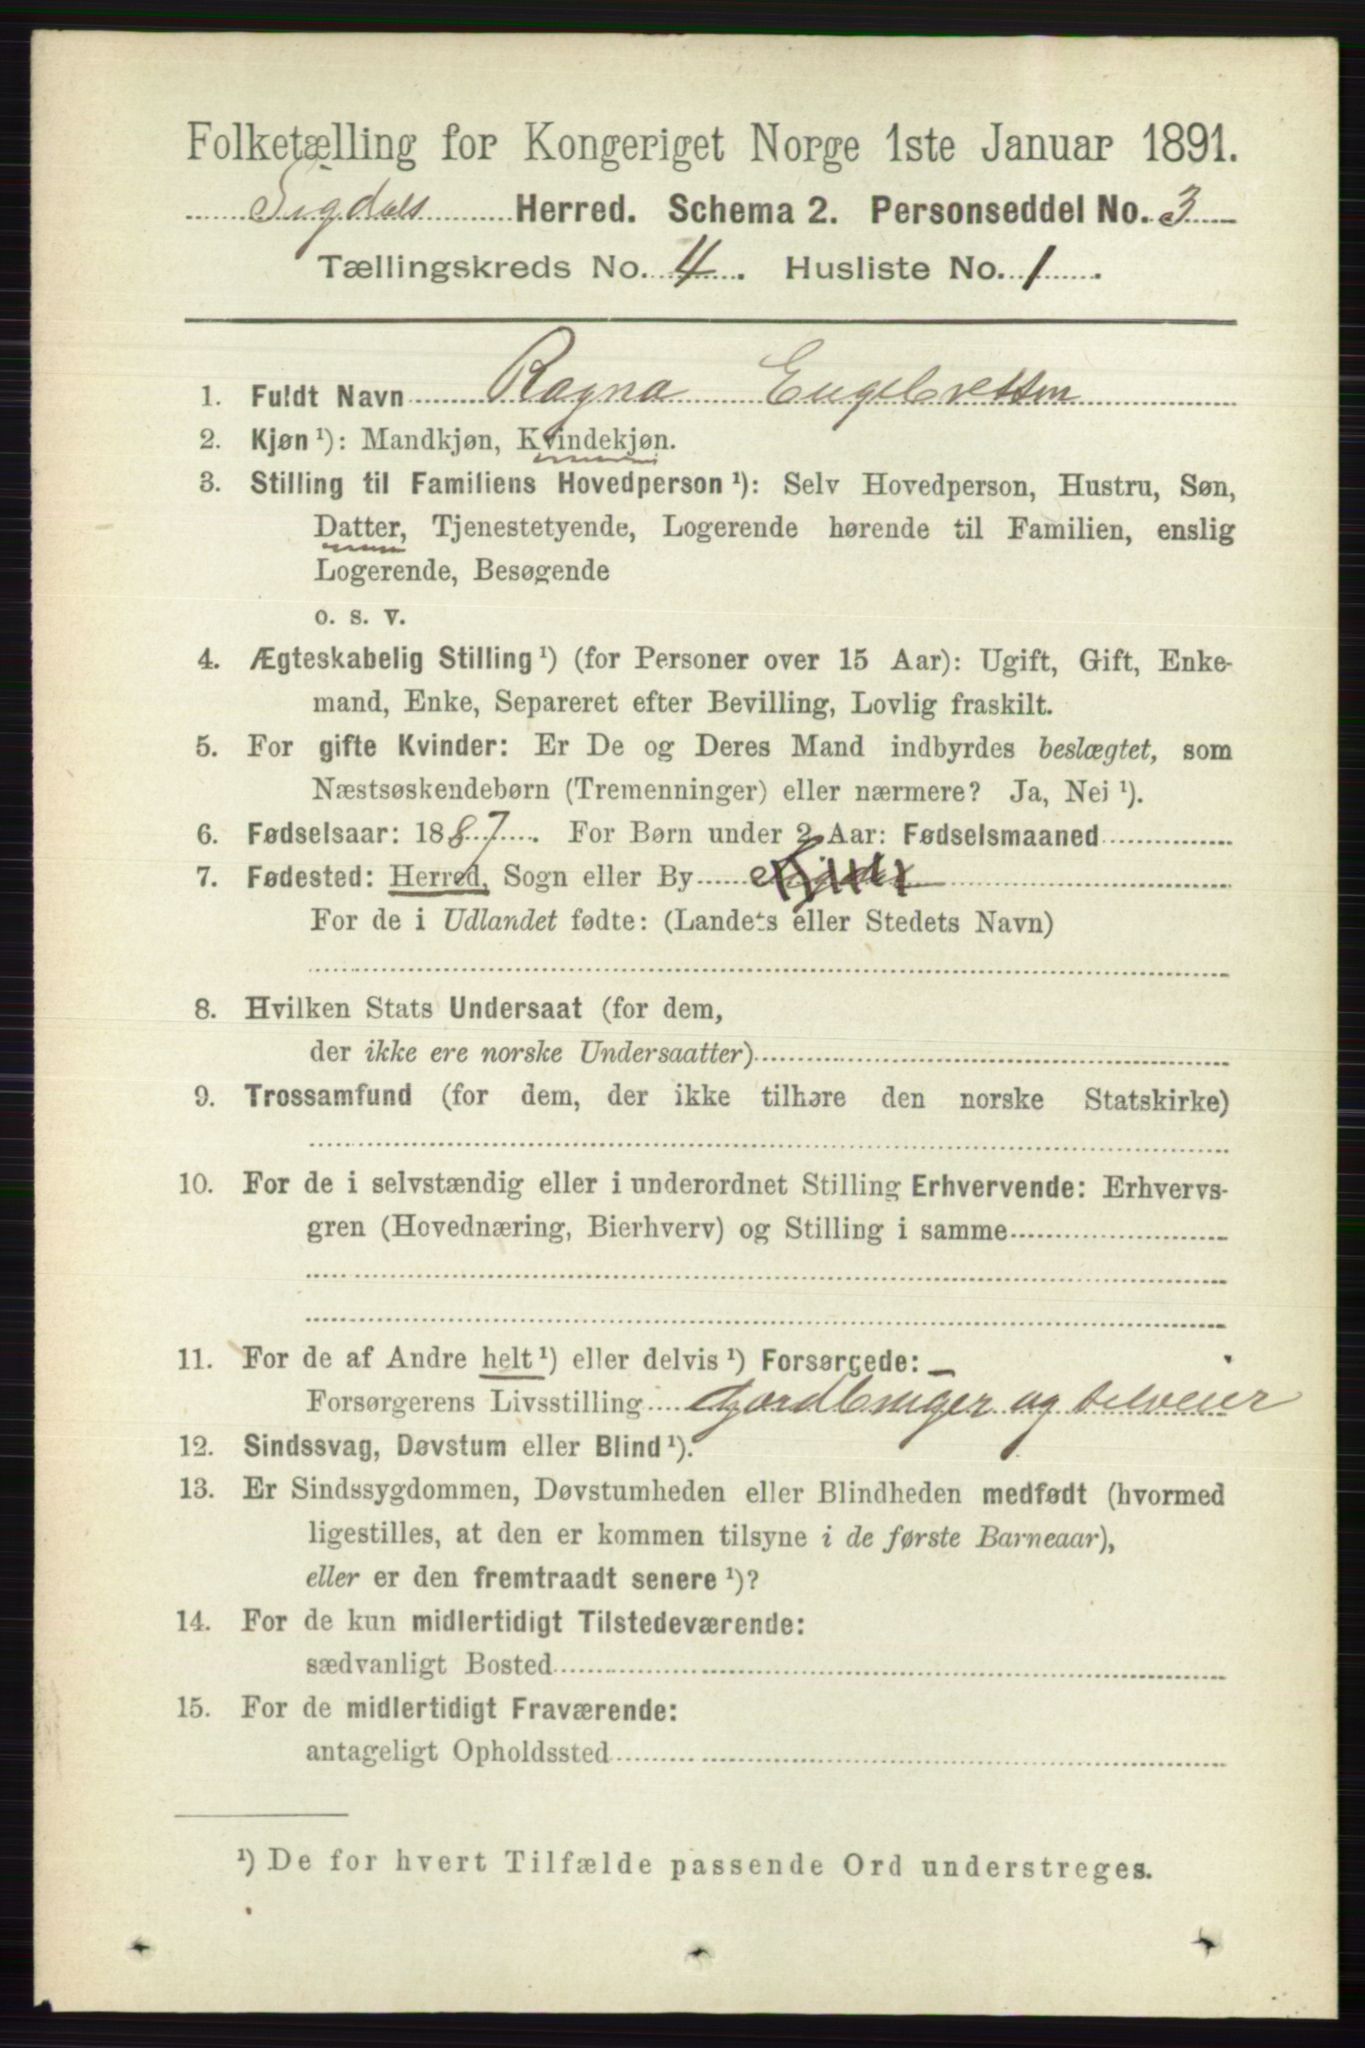 Folketælling for Kongeriget Norge 1ste Januar 1891.
Sigdals Herred. Schema 2. Personseddel No. 3
Tællingskreds No. 4. Husliste No. 1.
1. Fuldt Navn Ragna Engebretsen
2. Kjøn ¹): Mandkjøn, Kvindekjøn.
3. Stilling til Familiens Hovedperson ¹): Selv Hovedperson, Hustru, Søn,
Datter, Tjenestetyende, Logerende hørende til Familien, enslig
Logerende, Besøgende
o. s. v.
4. Ægteskabelig Stilling ¹) (for Personer over 15 Aar): Ugift, Gift, Enke-
mand, Enke, Separeret efter Bevilling, Lovlig fraskilt.
5. For gifte Kvinder: Er De og Deres Mand indbyrdes beslægtet, som
Næstsøskendebørn (Tremenninger) eller nærmere? Ja, Nei ¹).
6. Fødselsaar: 1887. For Børn under 2 Aar: Fødselsmaaned
7. Fødested: Herred, Sogn eller By
For de i Udlandet fødte: (Landets eller Stedets Navn)
8. Hvilken Stats Undersaat (for dem,
der ikke ere norske Undersaatter)
9. Trossamfund (for dem, der ikke tilhøre den norske Statskirke)
10. For de i selvstændig eller i underordnet Stilling Erhvervende: Erhvervs-
gren (Hovednæring, Bierhverv) og Stilling i samme
11. For de af Andre helt ¹) eller delvis ¹) Forsørgede:
Forsørgerens Livsstilling Gjardbruger og Selveier
12. Sindssvag, Døvstum eller Blind ¹).
13. Er Sindssygdommen, Døvstumheden eller Blindheden medfødt (hvormed
ligestilles, at den er kommen tilsyne i de første Barneaar),
eller er den fremtraadt senere ¹)?
14. For de kun midlertidigt Tilstedeværende:
sædvanligt Bosted
15. For de midlertidigt Fraværende:
antageligt Opholdssted
¹) De for hvert Tilfælde passende Ord understreges.